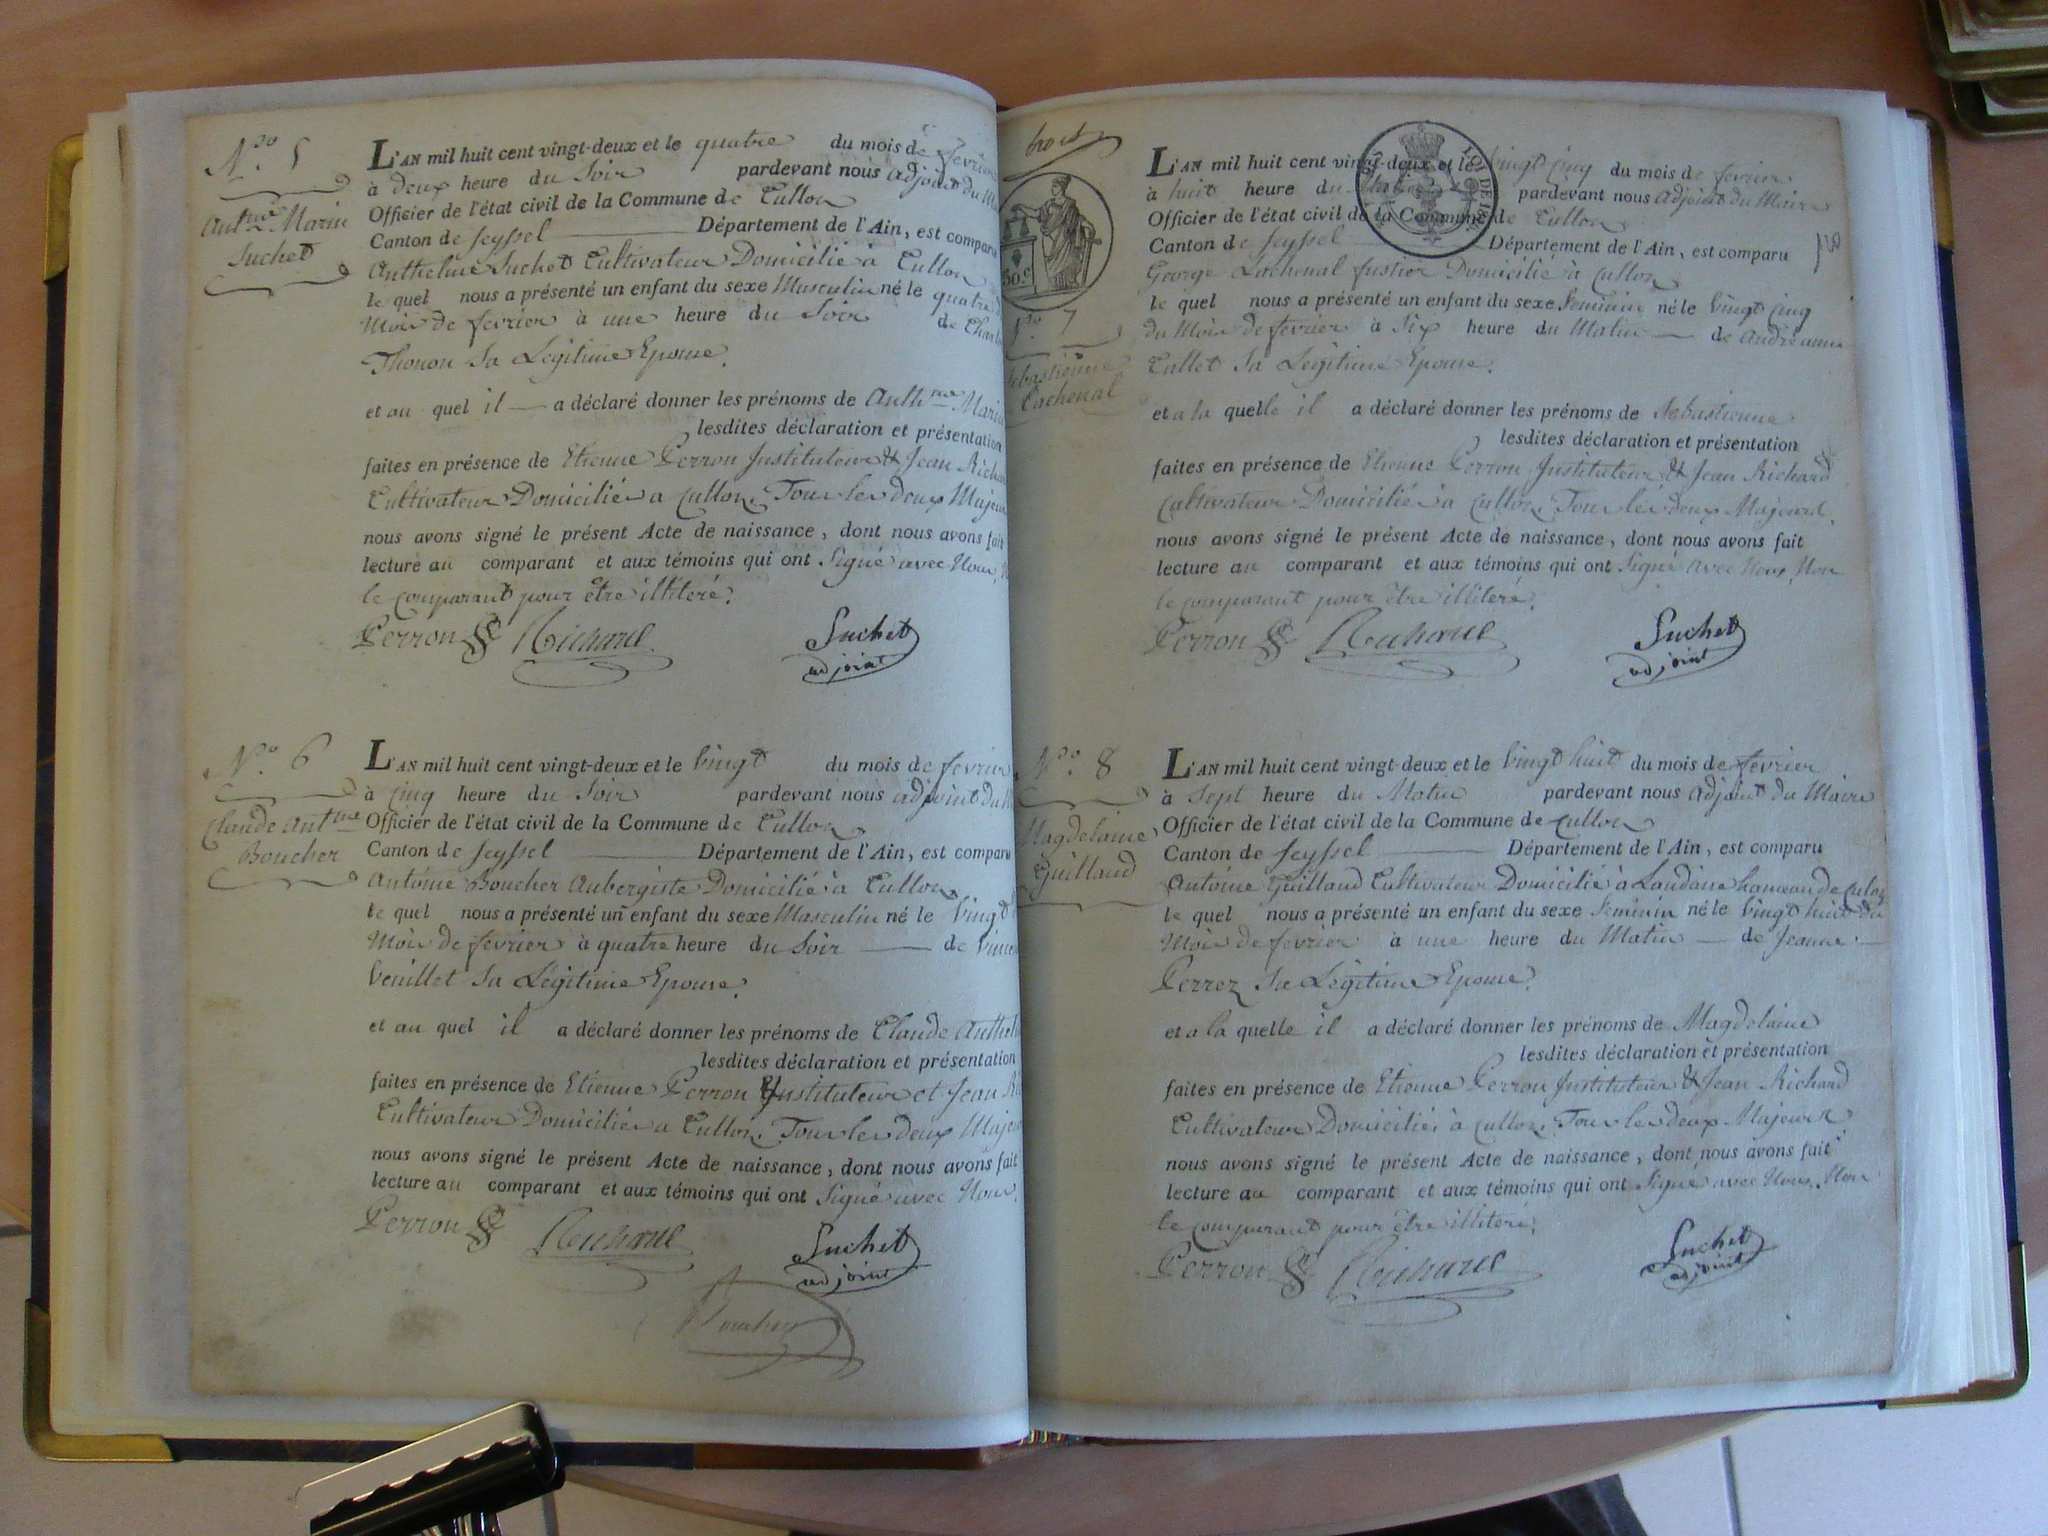 N.ro 5
Ant.me Marin
Suchet
L'AN mil huit cent vingt-deux et le quatre du mois de fevrier
à deux heure du Soir pardevant nous adjoint du
Officier de l'état civil de la Commune de Cullon
Canton de Seyssel Département de l'Ain, est comparu
Anthelme Suchet Cultivateur Domicilié à Cullon
le quel nous a présenté un enfant du sexe Masculin né le quatre
Mois de fevrier à une heure du Soir de
Thonon Sa Légitime Epouse.
et au quel il a déclaré donner les prénoms de Anth.me Marin
lesdites déclaration et présentation
faites en présence de Etienne Perron Instituteur & Jean
Cultivateur Domiciliés a Cullon, Tous les deux
nous avons signé le présent Acte de naissance, dont nous avons fait
lecture au comparant et aux témoins qui ont Signé avec Nous
le comparant pour être illitéré.
Perron Richard Suchet
adjoint
N.ro 6
Claude Ant.me
Boucher
L'AN mil huit cent vingt-deux et le Vingt du mois de fevrier
à Cinq heure du Soir pardevant nous adjoint du
Officier de l'état civil de la Commune de Cullon
Canton de Seyssel Département de l'Ain, est comparu
Antoine Boucher Aubergiste Domicilié à Cullon
le quel nous a présenté un enfant du sexe Masculin né le Vingt
Mois de fevrier à quatre heure du Soir de
Venillet Sa Légitime Epouse.
et au quel il a déclaré donner les prénoms de Claude
lesdites déclaration et présentation
faites en présence de Etienne Perron Instituteur et Jean
Cultivateur Domiciliés a Cullon, Tous les deux
nous avons signé le présent Acte de naissance, dont nous avons fait
lecture au comparant et aux témoins qui ont Signé avec Nous.
Perron Richard Suchet
adjoint
Boucher
trois
50.c
N.ro 7
Sebastienne
Lachenal
L'AN mil huit cent vingt-deux et le Vingt Cinq du mois de fevrier
à huit heure du Matin pardevant nous Adjoint du Maire
Officier de l'état civil de la Commune de Cullon
Canton de Seyssel Département de l'Ain, est comparu
George Lachenal Justier Domicilié à Cullon
le quel nous a présenté un enfant du sexe Feminin né le Vingt Cinq
du Mois de fevrier à Six heure du Matin de Andréanne
Cullet Sa Légitime Epouse.
et a la quelle il a déclaré donner les prénoms de Sebastienne
lesdites déclaration et présentation
faites en présence de Etienne Perron Instituteur & Jean Richard
Cultivateur Domiciliés à Cullon, Tous les deux Majeurs.
nous avons signé le présent Acte de naissance, dont nous avons fait
lecture au comparant et aux témoins qui ont Signé avec Nous, Non
le comparant pour être illitéré.
Perron Richard Suchet
adjoint
N.ro 8
Magdelaine
Guilland
L'AN mil huit cent vingt-deux et le Vingt huit du mois de fevrier
à Sept heure du Matin pardevant nous Adjoint du Maire
Officier de l'état civil de la Commune de Cullon
Canton de Seyssel Département de l'Ain, est comparu
Antoine Guilland Cultivateur Domicilié à Landaise hameau de Culoz
le quel nous a présenté un enfant du sexe Feminin né le Vingt huit du
Mois de fevrier à une heure du Matin de Jeanne
Perrez Sa Légitime Epouse.
et a la quelle il a déclaré donner les prénoms de Magdelaine
lesdites déclaration et présentation
faites en présence de Etienne Perron Instituteur & Jean Richard
Cultivateur Domiciliés à Cullon, Tous les deux Majeurs
nous avons signé le présent Acte de naissance, dont nous avons fait
lecture au comparant et aux témoins qui ont Signé avec Nous, Non
le comparant pour être illitéré.
Perron Richard Suchet
adjoint